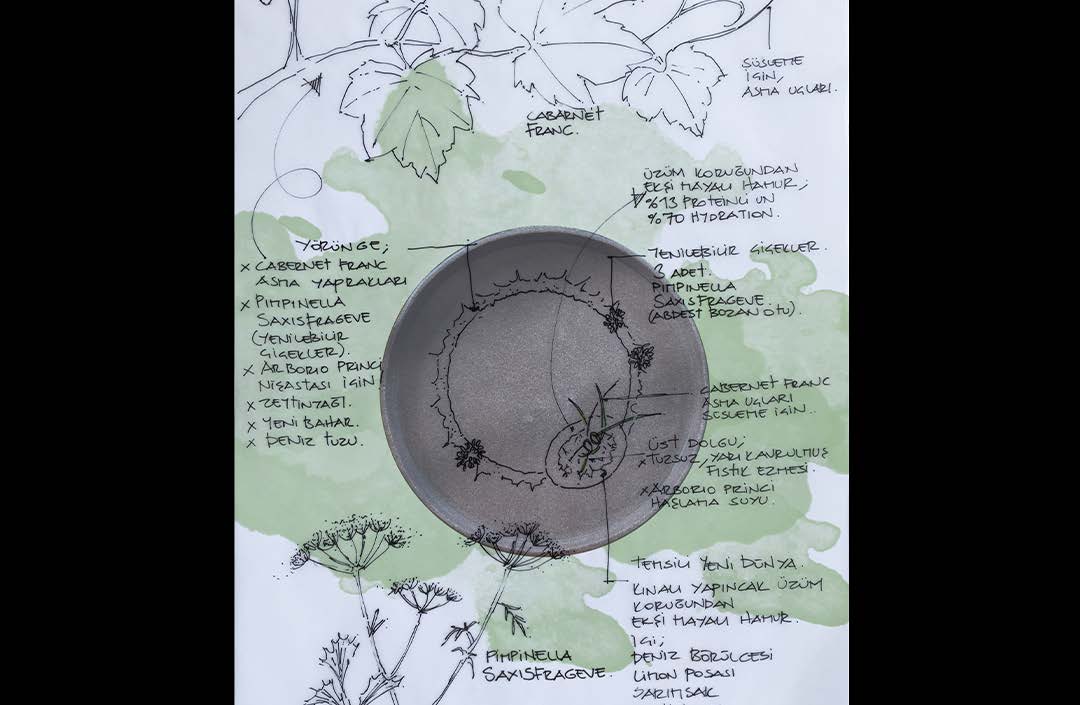 SÜSLEME
İÇİN,
ASMA UÇLARI.
CABARNET
FRANC.
ÜZÜM KORUĞUNDAN
EKŞİ MAYALI HAMUR;
%13 PROTEİNLİ UN
%70 HYDRATION.
YÖRÜNGE;
x CABERNET FRANC
ASMA YAPRAKLARI
x PIMPINELLA
SAXISFRAGEVE
(YENİLEBİLİR
ÇİÇEKLER).
x ARBORIO PRİNCİ
NİŞASTASI İÇİN
x ZEYTİNYAĞI.
x YENİ BAHAR.
x DENİZ TUZU.
YENİLEBİLİR ÇİÇEKLER.
3 ADET.
PIMPINELLA
SAXISFRAGEVE.
(ABDEST BOZAN OTU).
CABERNET FRANC
ASMA UÇLARI
SÜSLEME İÇİN..
ÜST DOLGU;
x TUZSUZ, YARI KAVRULMUŞ
FISTIK EZMESİ.
x ARBORIO PRİNCİ
HAŞLAMA SUYU.
TEMSİLİ YENİ DÜNYA.
KINALI YAPINCAK ÜZÜM
KORUĞUNDAN
EKŞİ MAYALI HAMUR.
İÇİ;
DENİZ BÖRÜLCESİ
LİMON POSASI
SARIMSAK
PIMPINELLA
SAXISFRAGEVE.